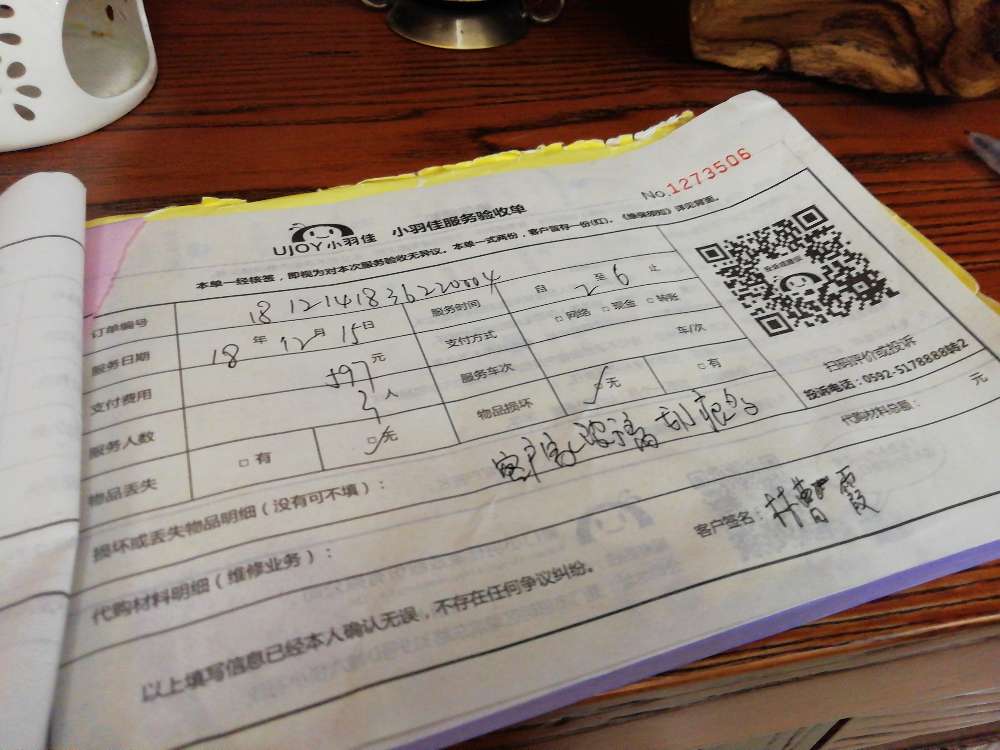 No.1273506
UJOY小羽佳 小羽佳服务验收单
本单一经核签，即视为对本次服务验收无异议。本单一式两份，客户留存一份(红)。《维保须知》详见背面。
订单编号 18 12141836220004 服务时间 自 2 至 6 止
服务日期 18 年 12 月 15 日 支付方式 □网络 □现金 □转账
支付费用 597 元 服务车次 车/次
服务人数 3 人 物品损坏 □无 □有
物品丢失 □有 □无
扫码评价或投诉
投诉电话：0592-5178888转2
损坏或丢失物品明细（没有可不填）： 客户家玻璃划痕多
代购材料总额： 元
代购材料明细（维修业务）：
客户签名：林 霞
以上填写信息已经本人确认无误，不存在任何争议纠纷。